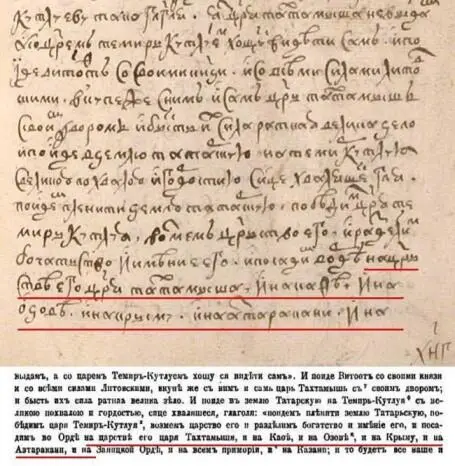 а со царемъ темиръ кутлуемъ хощу видѣти самъ. и по
иде витофтъ со своими князи. и со всѣми силами литов
скими. вкупе же с нимъ и самъ царь тахтамышъ с
своимъ дворомъ и бысть их сила ратная велика зело
и поиде в землю татарскую на темир кутлуя
с великою похвалою и гордостию сице хваляшеся гля.
поидем пленити землю татарскую, победим царя те
миръ кутлуя, возмемъ царство его. и разделим
богатьство и имѣние его. и посадим во ордѣ на царь
ствѣ его царя тахтамыша. и на кафѣ. и на
озовѣ. и на крыму. и на азтаракани. и на
выдамъ, а со царемъ Темиръ-Кутлуемъ хощу ся видѣти самъ». И поиде Витоѳтъ со своими князи
и со всѣми силами Литовскими, вкупѣ же съ нимъ и самъ царь Тахтамышь съ своимъ дворомъ;
и бысть ихъ сила ратная велика зѣло. И поиде въ землю Татарскую на Темиръ-Кутлуя съ ве-
ликою похвалою и гордостью, сице хваляшеся, глаголя: «поидемъ плѣнити землю Татарьскую, по-
бѣдимъ царя Темиръ-Кутлуя, возмемъ царство его и раздѣлимъ богатство и имѣніе его, и поса-
димъ во Ордѣ на царствѣ его царя Тахтамыша, и на Каѳѣ, и на Озовѣ, и на Крыму, и на
Азтаракани, и на Заяицкой Ордѣ, и на всемъ примор��и, и на Казани; и то будетъ все наше и